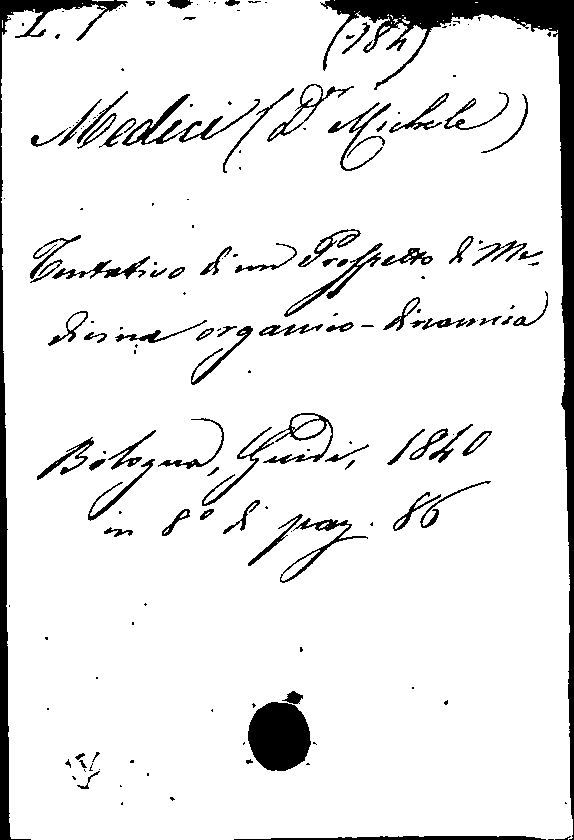 L. 7 (184)
Medici (D.or Michele)
Tentativo di un Prospetto di Me-
dicina organico-dinamica
Bologna, Guidi, 1840
in 8° di pag. 86